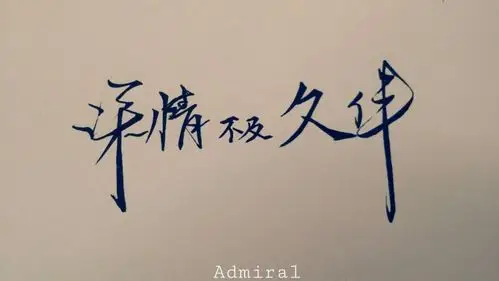 深情不及久伴
Admiral